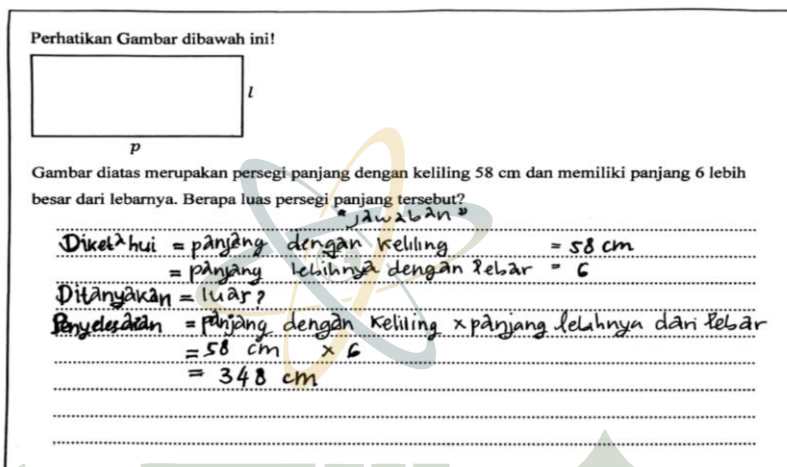 Perhatikan Gambar dibawah ini!
l
p
Gambar diatas merupakan persegi panjang dengan keliling 58 cm dan memiliki panjang 6 lebih
besar dari lebarnya. Berapa luas persegi panjang tersebut?
"Jawaban"
Diketahui = panjang dengan keliling = 58 cm
= panjang lebihnya dengan lebar = 6
Ditanyakan = luas?
Penyelesaian = panjang dengan keliling x panjang lebihnya dari lebar
= 58 cm x 6
= 348 cm